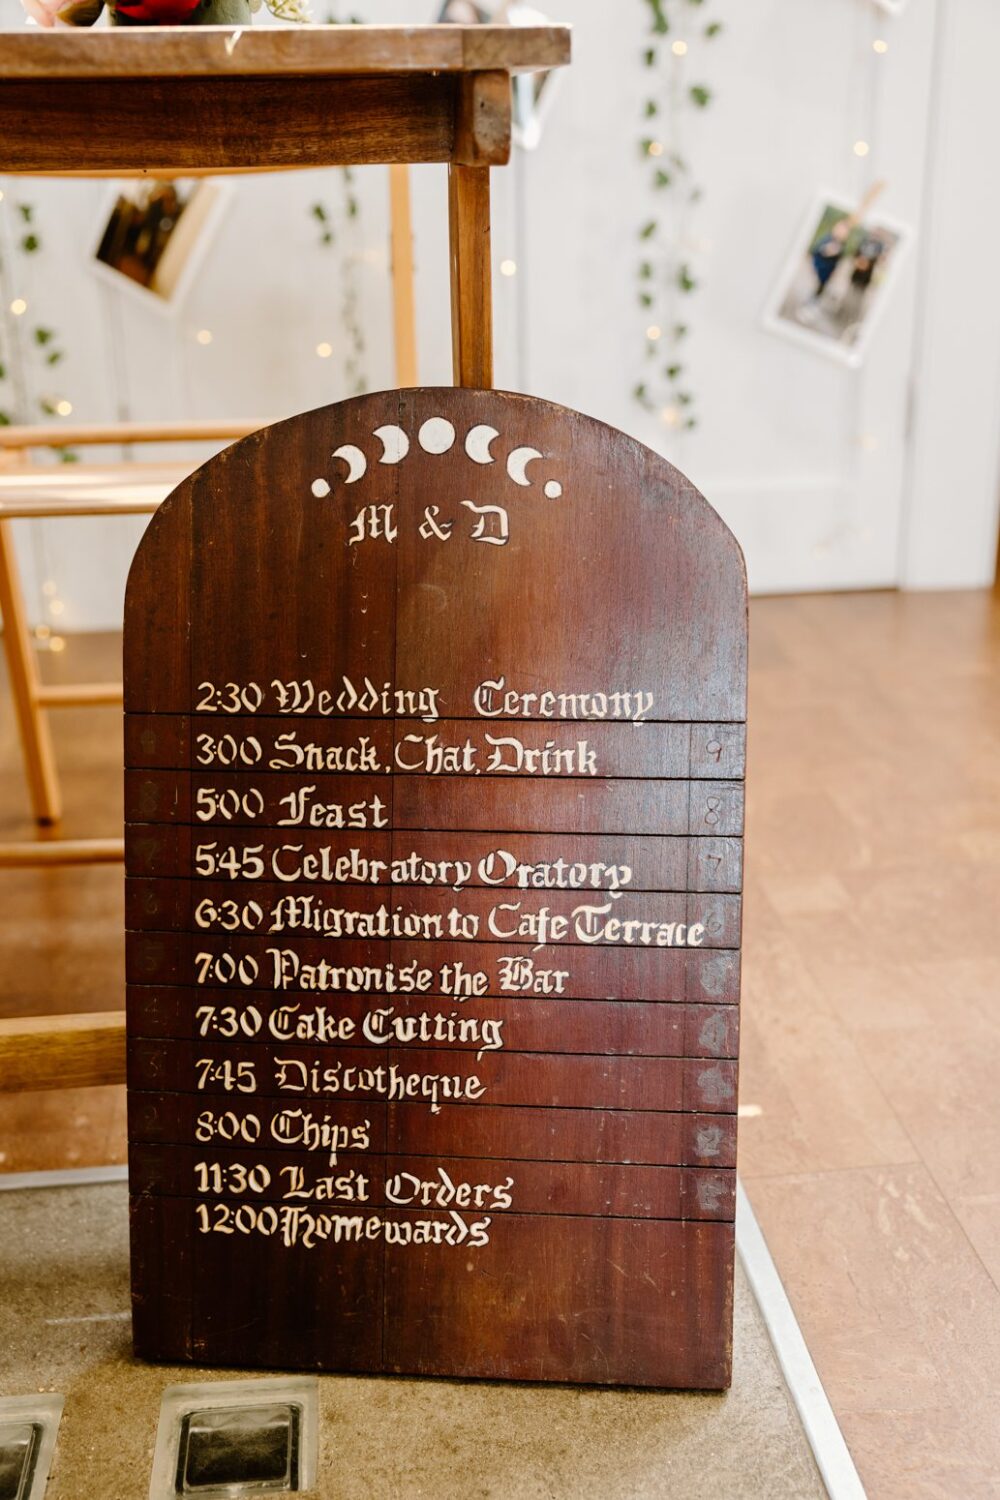 M & D
2:30 Wedding Ceremony
3:00 Snack, Chat, Drink 9
5:00 Feast 8
5:45 Celebratory Oratory 7
6:30 Migration to Cafe Terrace 6
7:00 Patronise the Bar
7:30 Cake Cutting
7:45 Discotheque
8:00 Chips
11:30 Last Orders
12:00 Homewards